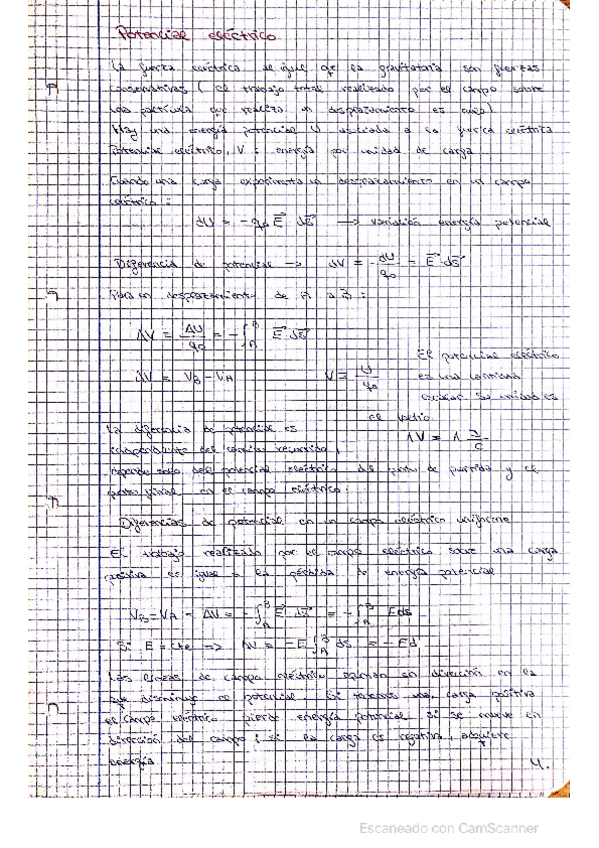 Potencial eléctrico
La fuerza eléctrica al igual que la gravitatoria son fuerzas
conservativas ( el trabajo total realizado por el campo sobre
una partícula que realiza un desplazamiento es nulo)
Hay una energía potencial U asociada a la fuerza eléctrica
Potencial eléctrico, V : energía por unidad de carga
Cuando una carga experimenta un desplazamiento en un campo
eléctrico :
dU = - q₀ E⃗ ds⃗ → variación energía potencial
Diferencia de potencial → dV = dU/q₀ = E⃗·ds⃗
Para un desplazamiento de A a B :
ΔV = ΔU/q₀ = - ∫_A^B E⃗·ds⃗
ΔV = V_B - V_A V = U/q₀
El potencial eléctrico
es una
escalar. Su unidad es
el voltio
1V = 1 J/C
La diferencia de potencial es
independiente del camino recorrido,
depende solo del potencial eléctrico del punto de partida y el
punto final en el campo eléctrico.
Diferencias de potencial en un campo eléctrico uniforme
El trabajo realizado por el campo eléctrico sobre una carga
positiva es igual a la pérdida de energía potencial
V_B - V_A = ΔV = - ∫_A^B E⃗·ds⃗ = - ∫_A^B Eds
Si E = cte => ΔV = - E ∫_A^B ds = - Ed
Las líneas de campo eléctrico apuntan en dirección en la
que disminuye el potencial. Si tenemos una carga positiva
el campo eléctrico pierde energía potencial si se mueve en
dirección del campo ; si la carga es negativa, adquiere
energía
4.
Escaneado con CamScanner